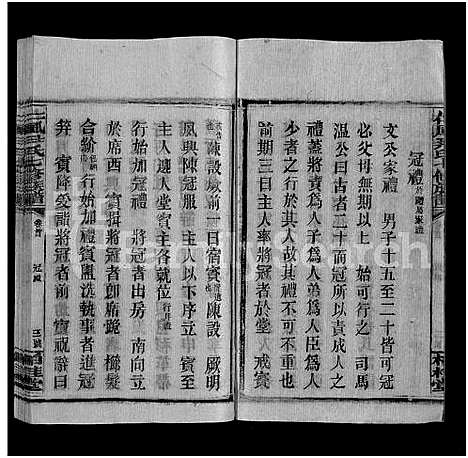 冠禮
文公家禮 男子十五至二十皆可冠
必父母無期以上 始可行之 司馬
溫公曰古者二十而冠所以責成人之
禮蓋將責為人子為人弟為人臣為人
少者之行於其人故其禮不可不重也
前期三日主人率將冠者於堂 戒賓
陳設 前一日宿賓 陳設 厥明
夙興陳冠服 主人以下序立 賓至
主人迎入堂 賓主各就位
行始加冠禮 將冠者出房 南向立
於席西 賓揖將冠者即席跪 櫛髮
合紒 行始加禮 賓盥洗執事者進冠
笄 賓降受詣將冠者前 賓祝辭曰
氏七修族譜
卷首
冠禮
FamilySearch